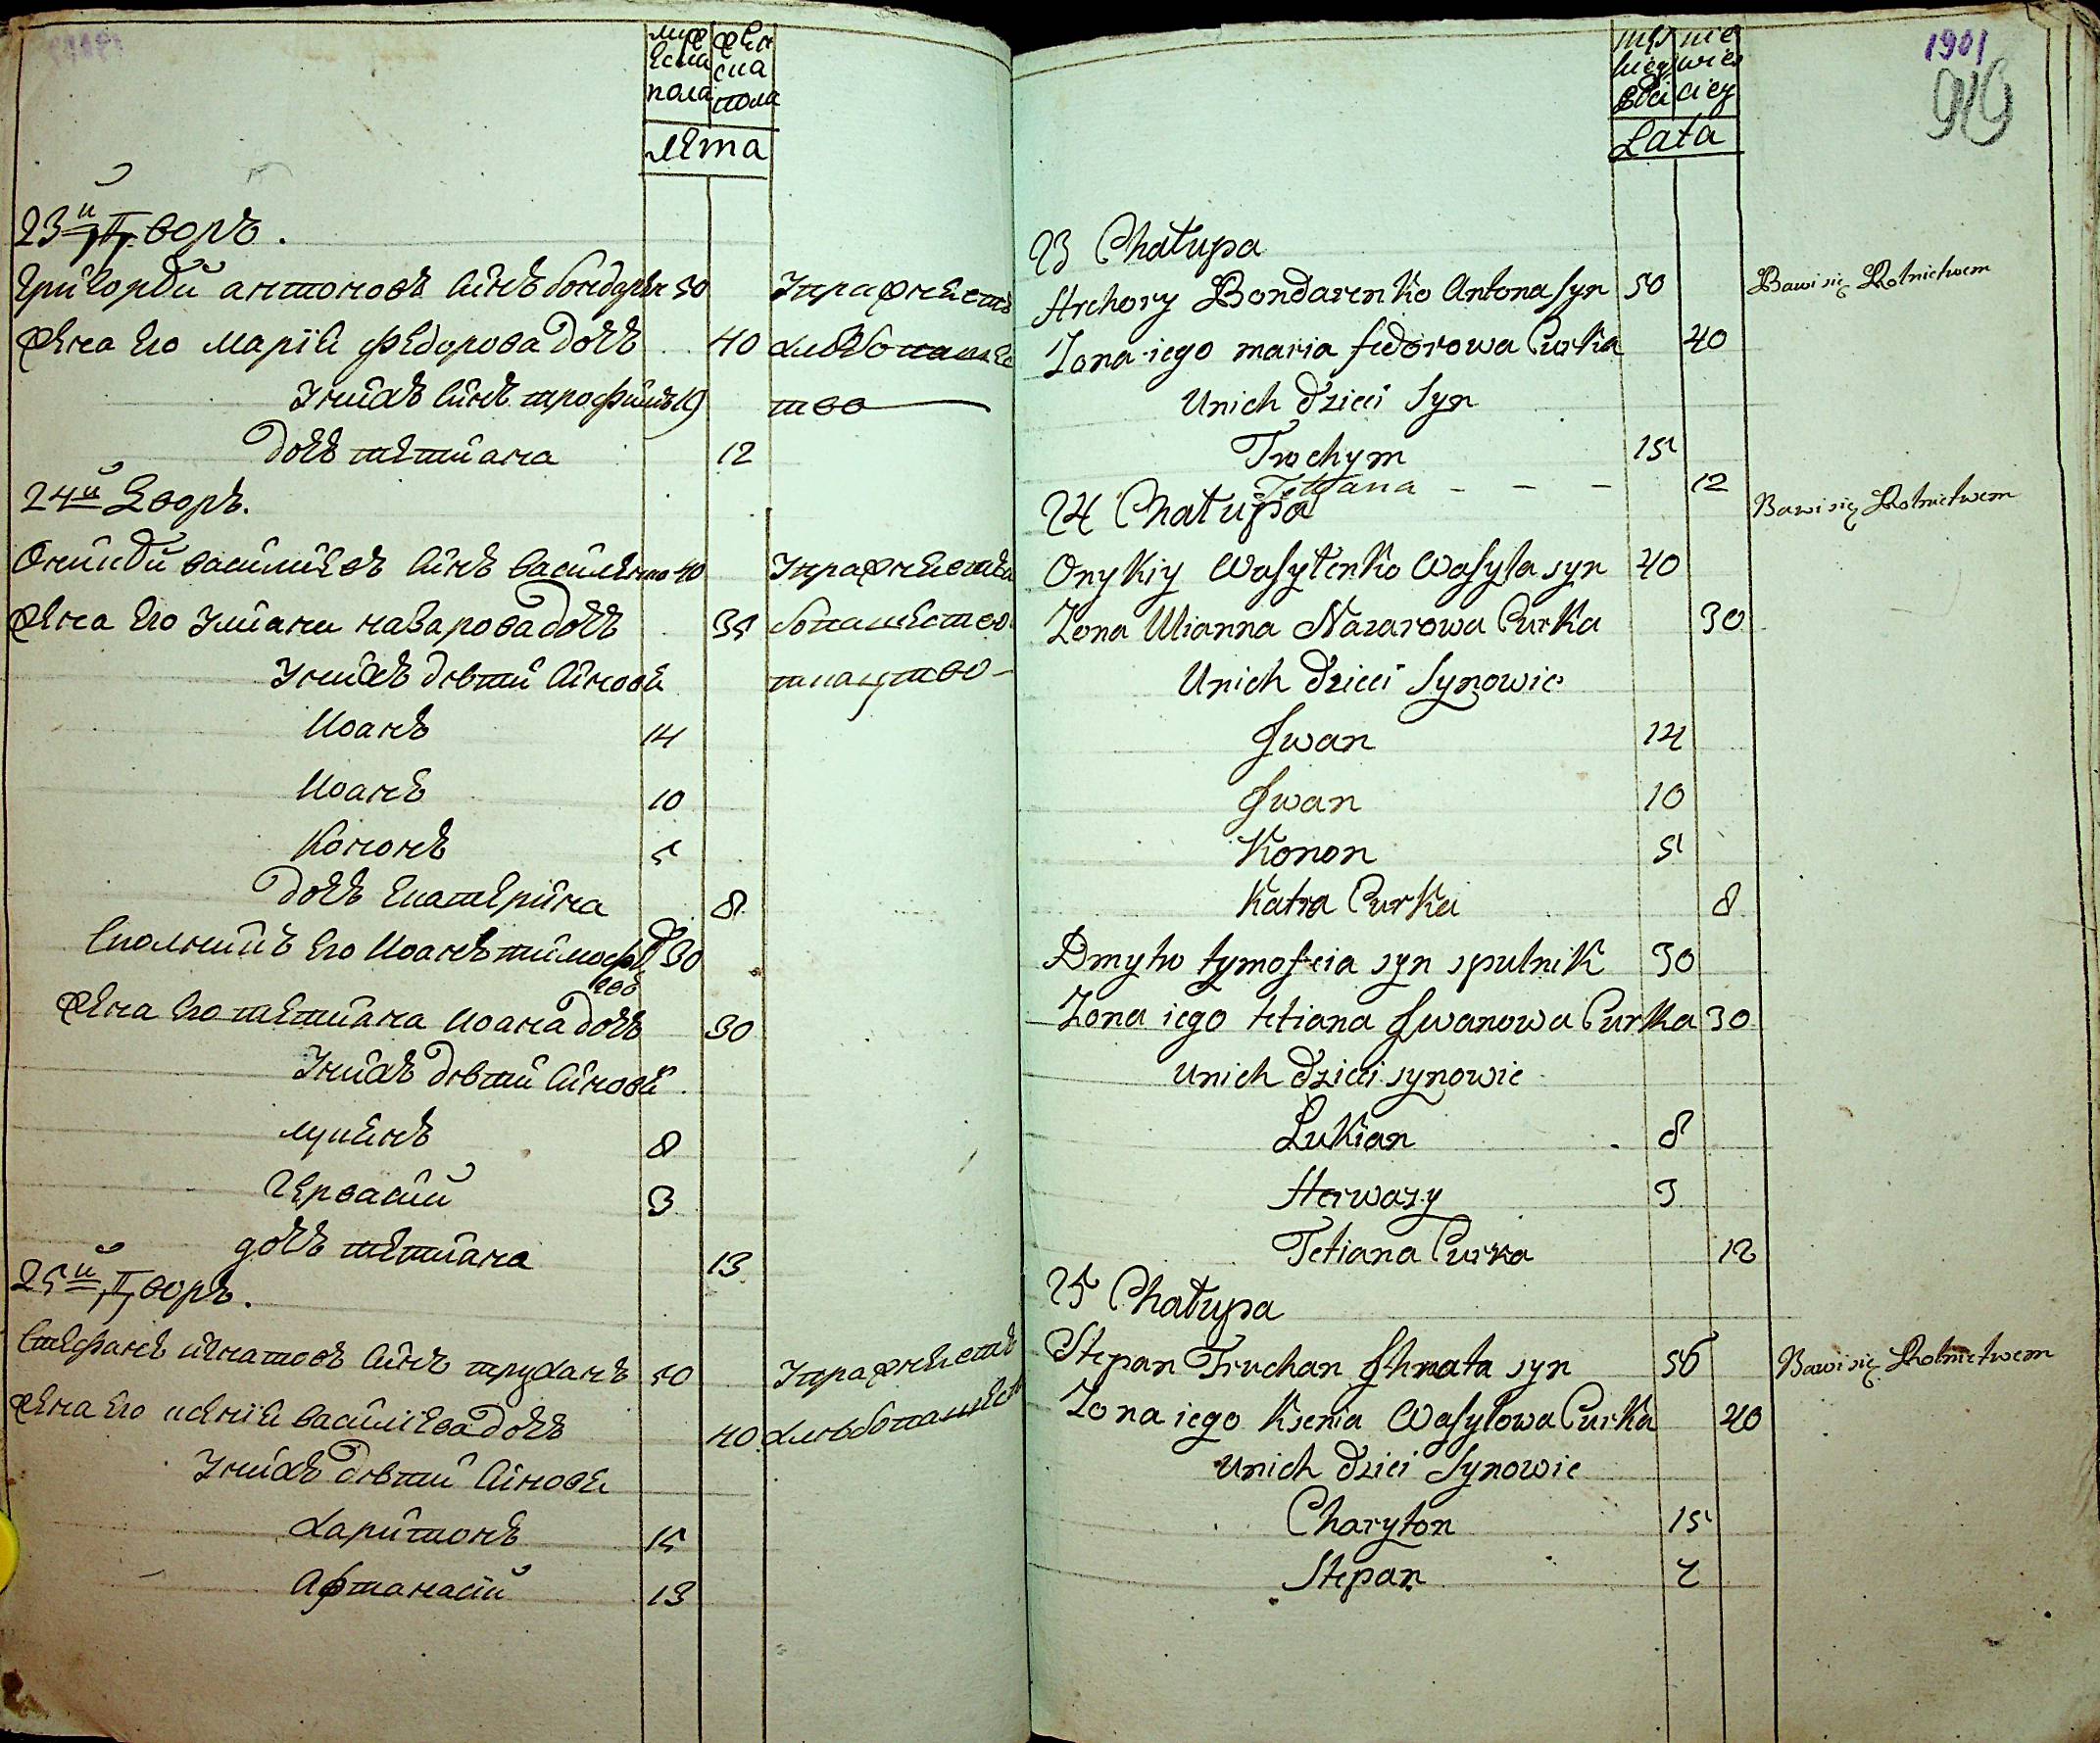 муже женс
ска ска
пола пола
лета
23й Дворъ.
Григорій антоновъ синъ бондарен 50 Упражнѣется
жена его марія федорова дочь 40 хлебопашес
У нихъ синъ трофимъ 19 тво
дочь тетиана 12
24й Дворъ.
Оникій василиевъ синъ василенко 40 Упражнѣется
жена его улияна назарова дочь 35 бопашество
У нихъ дѣти синове ткацтво
Иоанъ 14
Иоанъ 10
Кононъ 5
дочь Екатерина 8
Сполникъ его Иоанъ тимофѣ 30
евъ
жена его тетиана Иоана дочь 30
У нихъ дѣти синове
лукіенъ 8
Гервасій 3
дочь тетиана 13
25й Дворъ.
Стефанъ игнатовъ синъ труханъ 50 Упражнѣется
жена его ксенія василіева дочь 40 хлебопашес
У нихъ дѣти синове
Харитонъ 15
Афтанасій 13
1901
Lata
23 Chałupa
Hrehory Bondarenko Antona syn 50 Bawi się Rolnictwem
Zona iego maria fedorowa Curka 40
Unich dzieci Syn
Trochym 15
Tetiana - - - 12
24 Chałupa Bawi się Rolnictwem
Onykiy Wasylenko Wasyla syn 40
Zona Ulianna Nazarowa Curka 30
Unich dzieci Synowie
Iwan 14
Iwan 10
Konon 5
Katra Curka 8
Dmytro tymofeia syn spulnik 30
Zona iego tetiana Iwanowa Curka 30
Unich dzieci synowie
Łukian 8
Herwazy 3
Tetiana Curka 12
25 Chałupa
Stepan Truchan Ihnata syn 56 Bawi się Rolnictwem
Zona iego Ksenia Wasylowa Curka 40
Unich dzieci Synowie
Charyton 15
Stepan 7